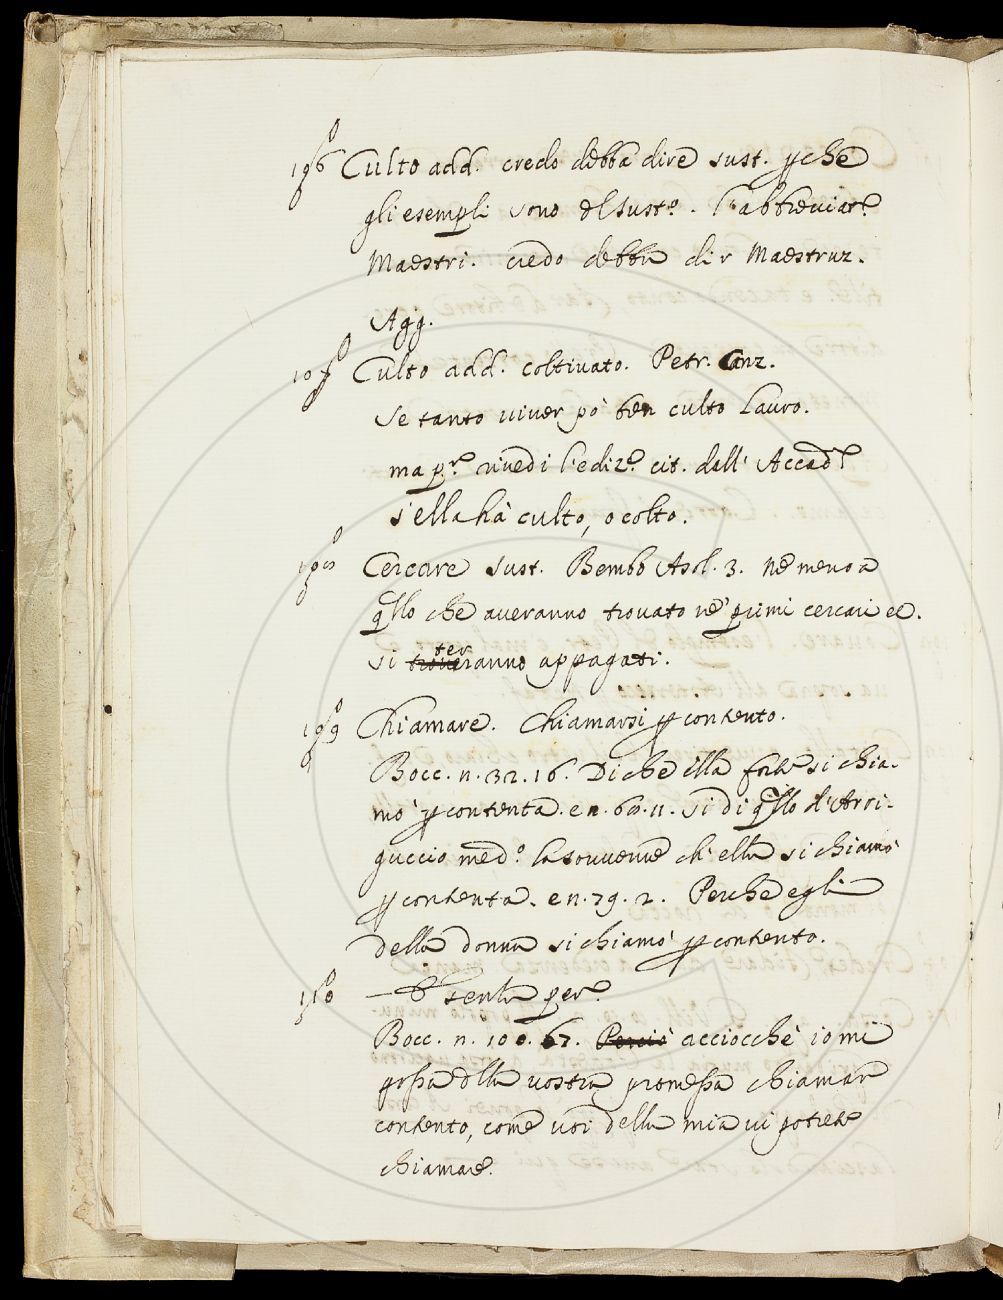 196 Culto add. credo debba dire sust. p che
gli esempli sono del Sust.º. l'abbreviat.ª
Maestri. credo debba dir Maestruz.
Agg.
107 Culto add. coltivato. Petr. Canz.
Se tanto viver pò ben culto Lauro.
ma p.ª rivedi l'ediz.e cit. dall' Accad.ª
s'ella hà culto, o colto.
Cercare sust. Bembo Asol. 3. Ne meno a
qllo che averanno trovato ne' primi cercari ec.
si terranno appagati.
109 Chiamare. Chiamarsi p contento.
Bocc. n. 32. 16. Di che ella forte si chia-
mò p contenta. e n. 11. si di qllo d'Arri-
guccio med.º la sovvenne ch'ella si chiamò
p contenta. e n. 79. 2. Perche egli
della donna si chiamò p contento.
110 — E senza per.
Bocc. n. 100. 67. Perciò acciocchè io mi
possa della vostra promessa chiamar
contento, come voi della mia vi potete
chiamare.